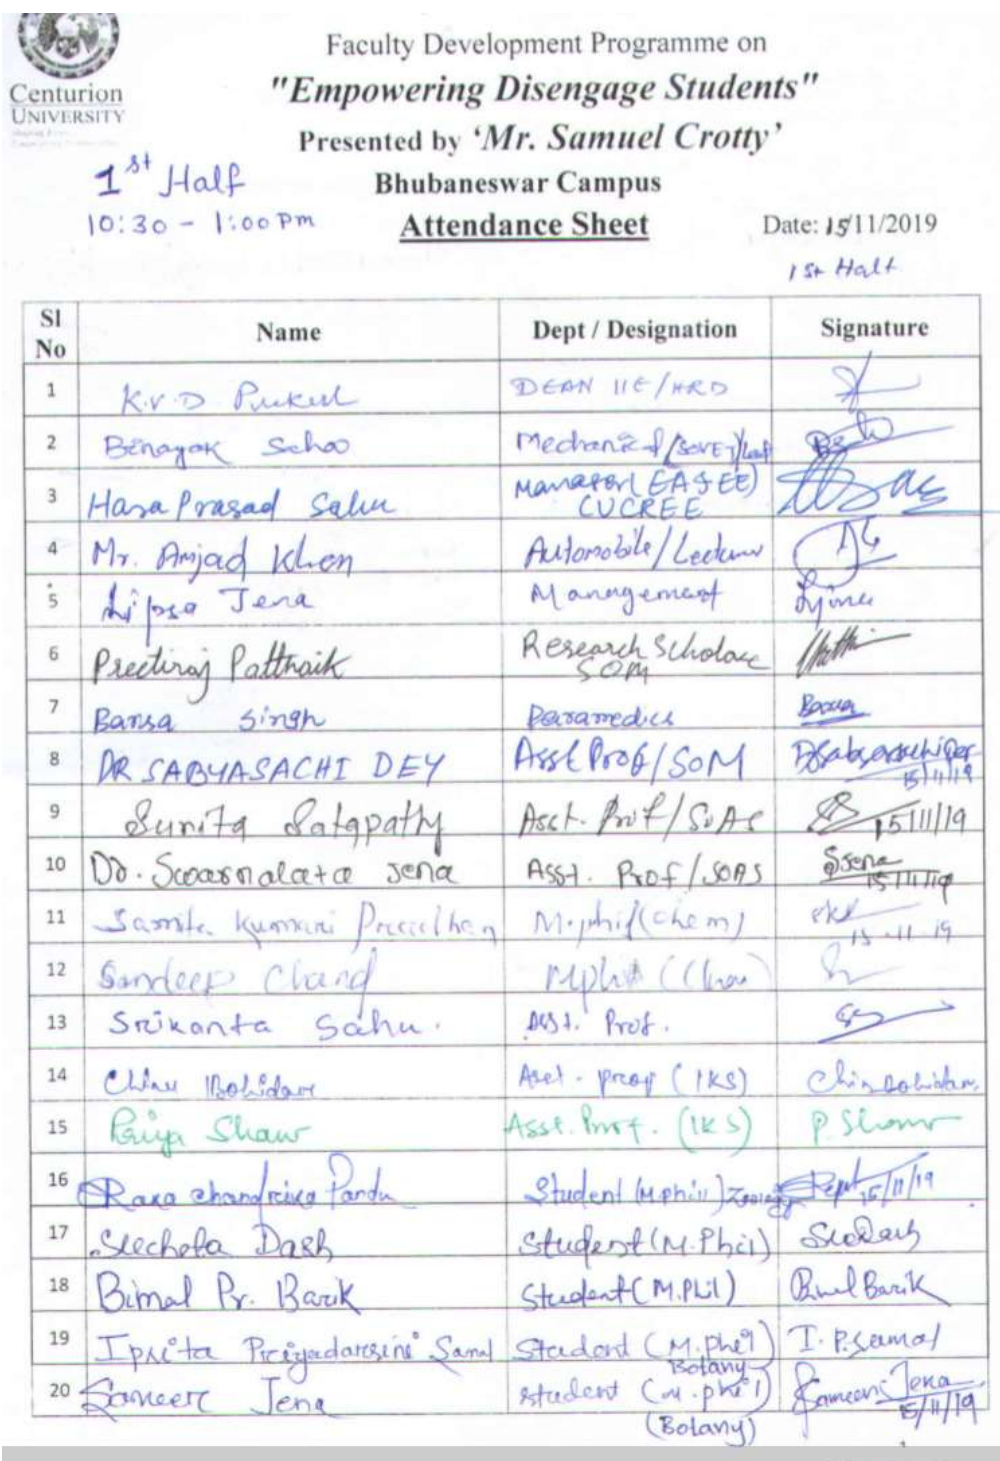 Centurion
UNIVERSITY
Faculty Development Programme on
"Empowering Disengage Students"
Presented by 'Mr. Samuel Crotty'
1st Half
Bhubaneswar Campus
10:30 - 1:00 Pm
Attendance Sheet
Date: 15/11/2019
1st Half
Sl No Name Dept / Designation Signature
1 K.V.D DEAN IIE/HRD
2 Benayak Sahoo Mechanical
3 Hara Prasad Sahu Manager (EASEE)
CUCREE
4 Mr. Amjad Khan Automobile/Lecturer
5 Lipsa Jena Management Ljena
6 Preetiraj Pattnaik Research Scholar
SOM
7 Bansa Singh Paramedics
8 DR SABYASACHI DEY Asst Prof/SOM
15/11/19
9 Sunita Satapathy Asst. Prof/SOAS 15/11/19
10 Dr. Swarnalata Jena Asst. Prof/SOAS SJena
15/11/19
11 Samita Kumari Pradhan M.phil(chem)
15-11-19
12 Sandeep Chand Mphil
13 Srikanta Sahu. Asst. Prof.
14 Chinu Bohidar Asst. prof (IKS) Chinu Bohidar
15 Priya Shaw Asst. Prof. (IKS) P. Shaw
16 Student (M.phill) Zoology 15/11/19
17 Sucheta Dash Student (M.Phil) SuDash
18 Bimal Pr. Barik Student (M.Phil) Bimal Barik
19 Ipsita Priyadarsini Samal Student (M.phil) I. P. Samal
Botany
20 Sameer Jena student (M.phil) Sameer Jena
(Botany) 15/11/19